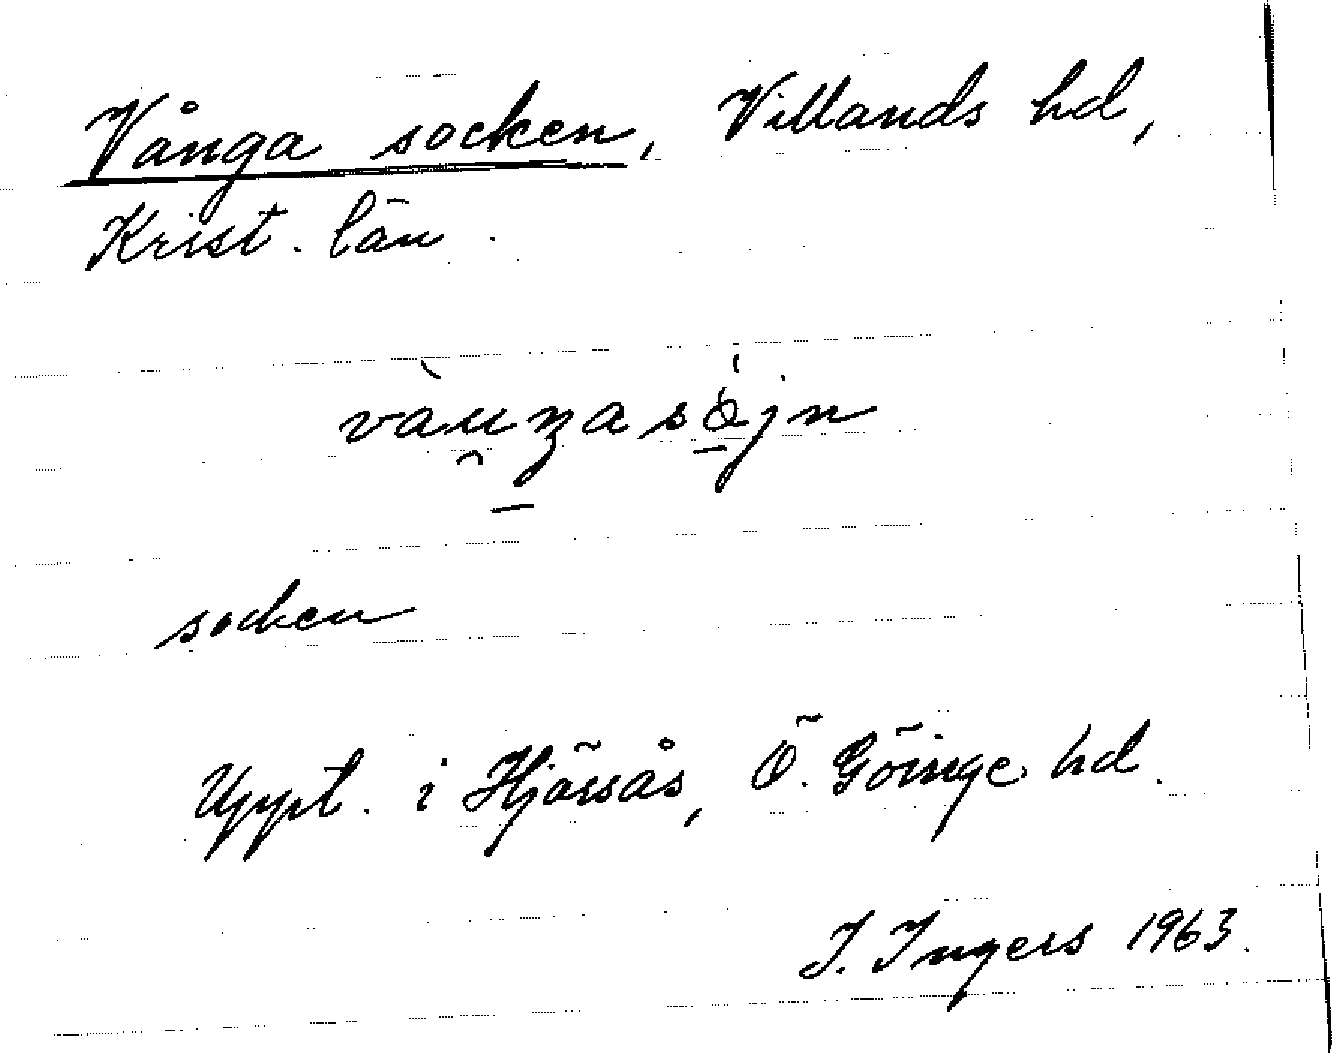 Vånga socken, Villands hd,
Krist. län.
vàu̯ŋasǿjn
socken
Uppt. i Hjärsås, Ö. Göinge hd.
I. Ingers 1963.